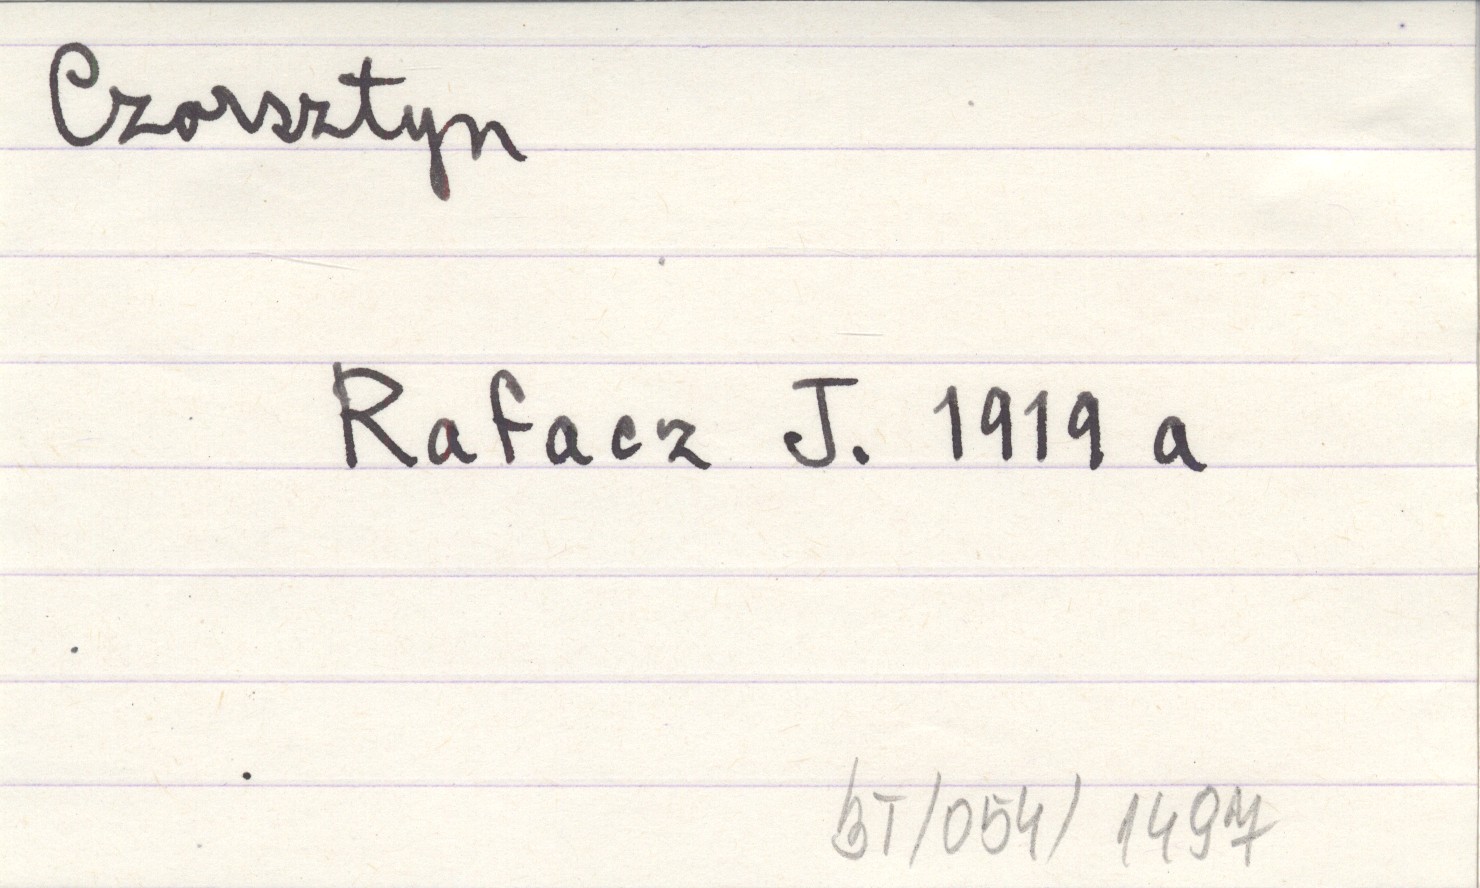 Czorsztyn
Rafacz J. 1919 a
BT/054/1497